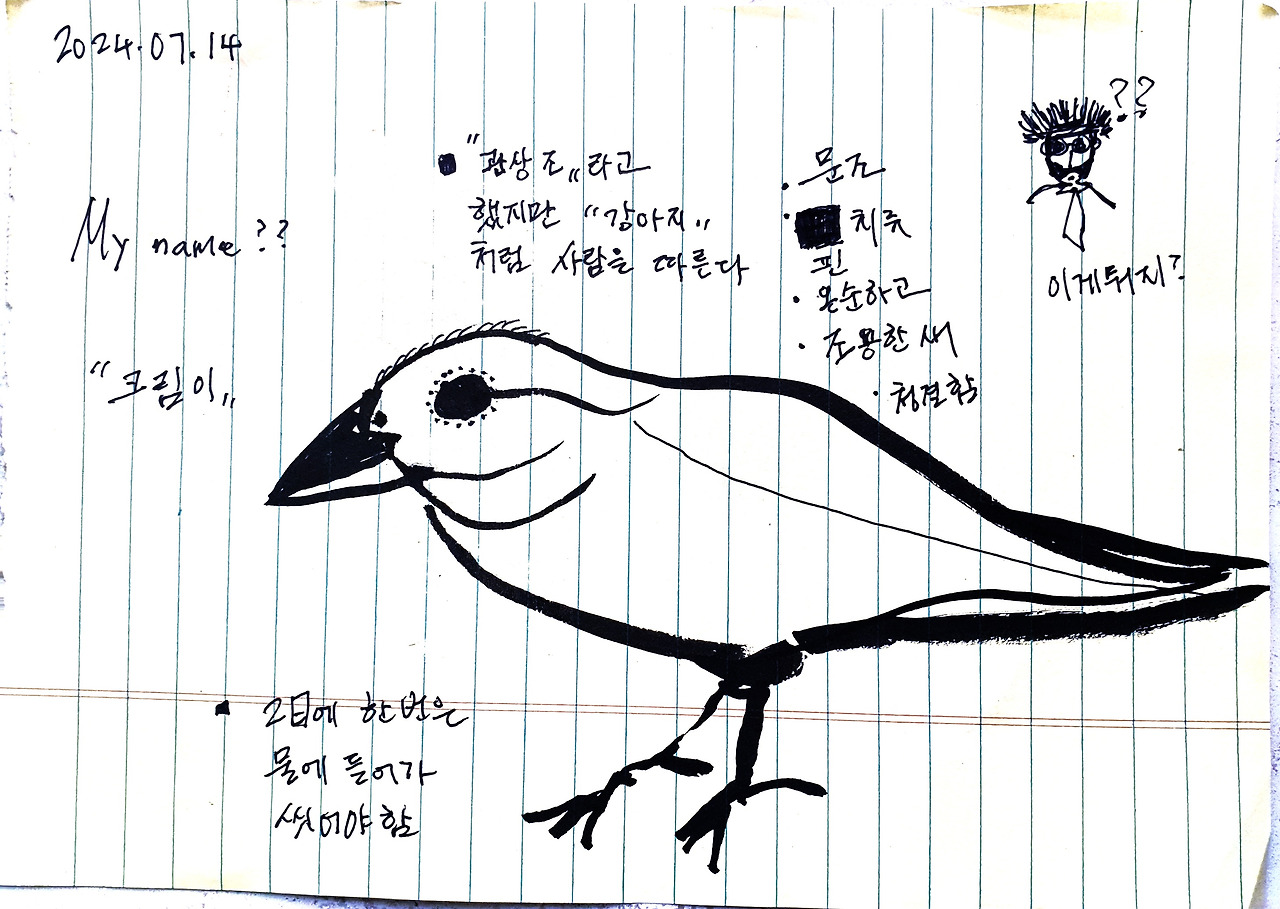 2024.07.14
??
"관상조" 라고
했지만 "강아지"
처럼 사람을 따른다
· 문조
· 치쥬
핀
· 온순하고
· 조용한 새
· 청결함
이게 뭐지?
My name ??
"크림이"
2日에 한번은
물에 들어가
씻어야 함